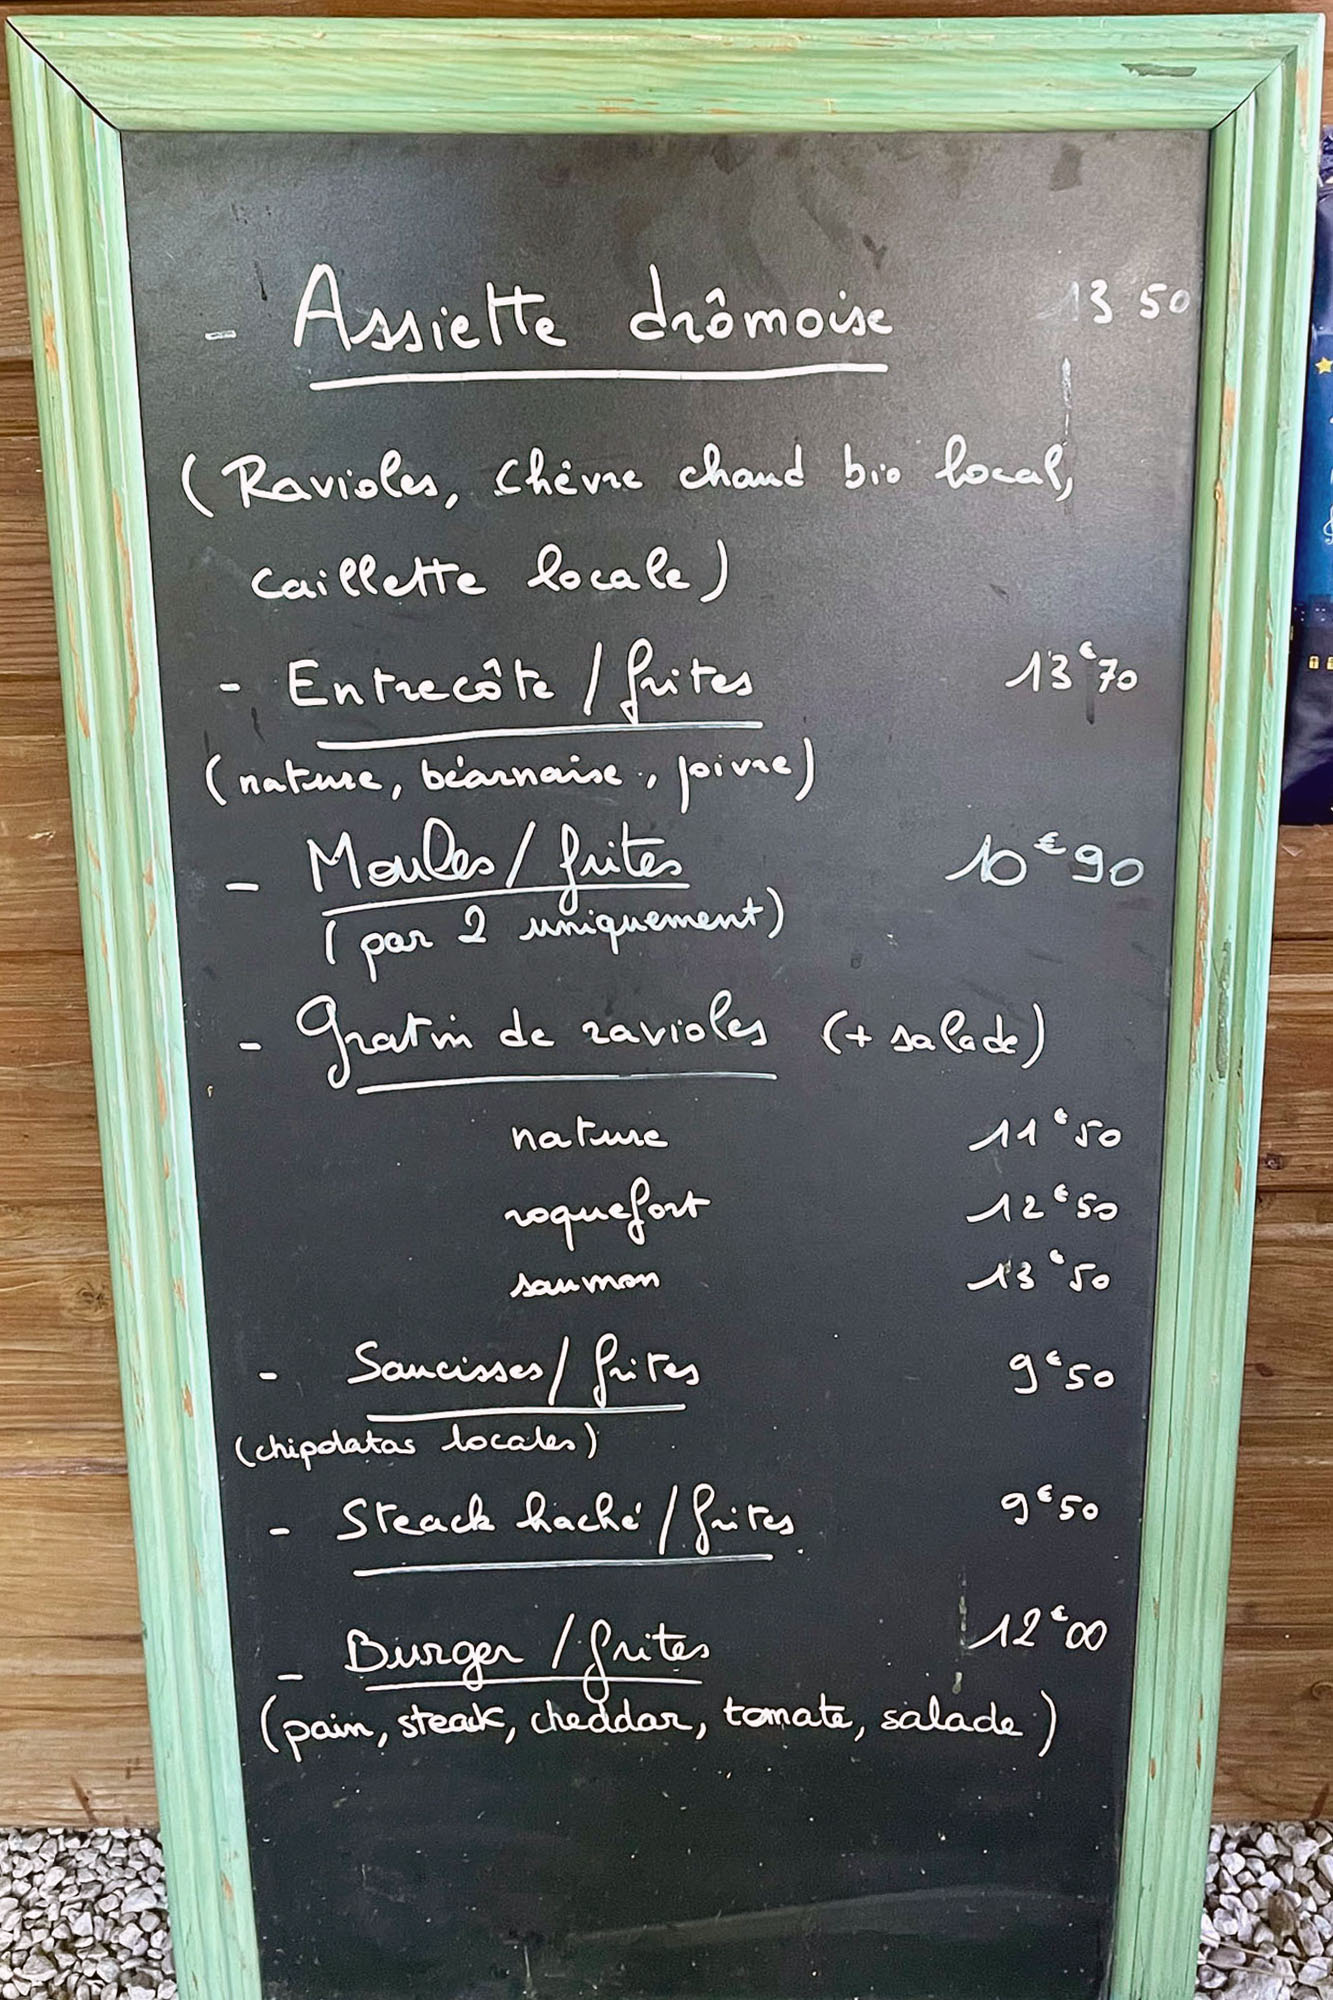 - Assiette drômoise 13 50
(Ravioles, chèvre chaud bio local,
caillette locale)
- Entrecôte / frites 13€70
(nature, béarnaise, poivre)
- Moules / frites 10€90
(par 2 uniquement)
- Gratin de ravioles (+ salade)
nature 11€50
roquefort 12€50
saumon 13€50
- Saucisses / frites 9€50
(chipolatas locales)
- Steack haché / frites 9€50
- Burger / frites 12€00
(pain, steak, cheddar, tomate, salade)